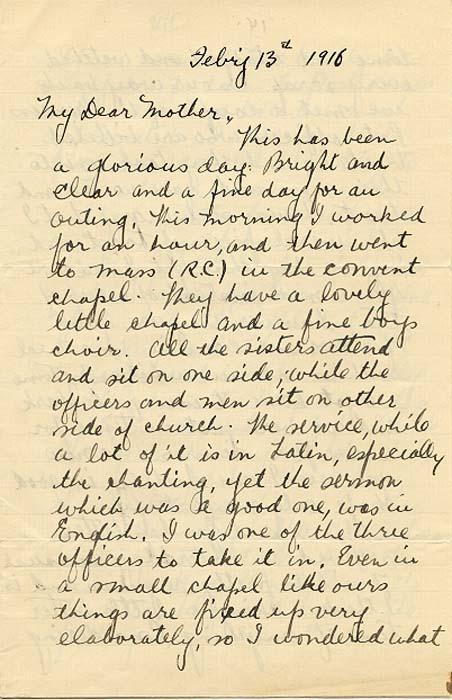 Feb'y 13st 1916
My Dear Mother,
This has been
a glorious day. Bright and
clear and a fine day for an
outing. This morning I worked
for an hour, and then went
to mass (R.C.) in the convent
chapel. They have a lovely
little chapel and a fine boys
choir. All the sisters attend
and sit on one side, while the
officers and men sit on other
side of church. The service, while
a lot of it is in Latin, especially
the chanting, yet the sermon
which was a good one, was in
English. I was one of the three
officers to take it in. Even in
a small chapel like ours
things are fixed up very
elaborately, so I wondered what